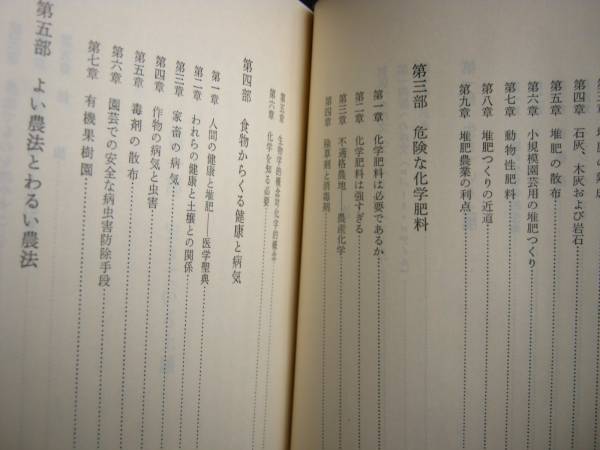 第四章 石灰、木灰および岩石
第五章 堆肥の散布
第六章 小規模園芸用の堆肥つくり
第七章 動物性肥料
第八章 堆肥つくりの近道
第九章 堆肥農業の利点
第三部 危険な化学肥料
第一章 化学肥料は必要であるか
第二章 化学肥料は強すぎる
第三章 不適格農地——農産化学
第四章 除草剤と消毒剤
第五章 生物学的概念対化学的概念
第六章 化学を知る必要
第四部 食物からくる健康と病気
第一章 人間の健康と堆肥——医学聖典
第二章 われらの健康と土壌との関係
第三章 家畜の病気
第四章 作物の病気と虫害
第五章 毒剤の散布
第六章 園芸での安全な病虫害防除手段
第七章 有機果樹園
第五部 よい農法とわるい農法